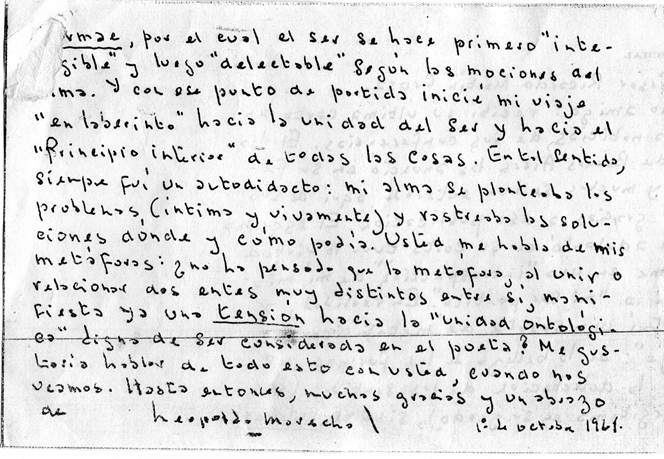 rmae, por el cual el ser se hace primero "inte-
gible" y luego "delectable" según las mociones del
lma. Y con ese punto de partida inicié mi viaje
"en laberinto" hacia la unidad del Ser y hacia el
"Principio interior" de todas las cosas. En tal sentido,
siempre fuí un autodidacto: mi alma se planteaba los
problemas (íntima y vivamente) y rastreaba las solu-
ciones dónde y cómo podía. Usted me habla de mis
metáforas: ¿no ha pensado que la metáfora, al unir o
relacionar dos entes muy distintos entre sí, mani-
fiesta ya una tensión hacia la "unidad ontológi-
ca" digna de ser considerada en el poeta? Me gus-
taría hablar de todo esto con usted, cuando nos
veamos. Hasta entonces, muchas gracias y un abrazo
de Leopoldo Marechal octubre